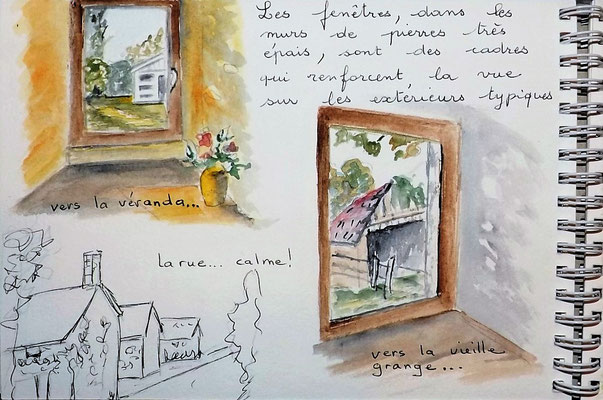 Les fenêtres, dans les
murs de pierres très
épais, sont des cadres
qui renforcent la vue
sur les extérieurs typiques
vers la véranda...
la rue... calme!
vers la vieille
grange...